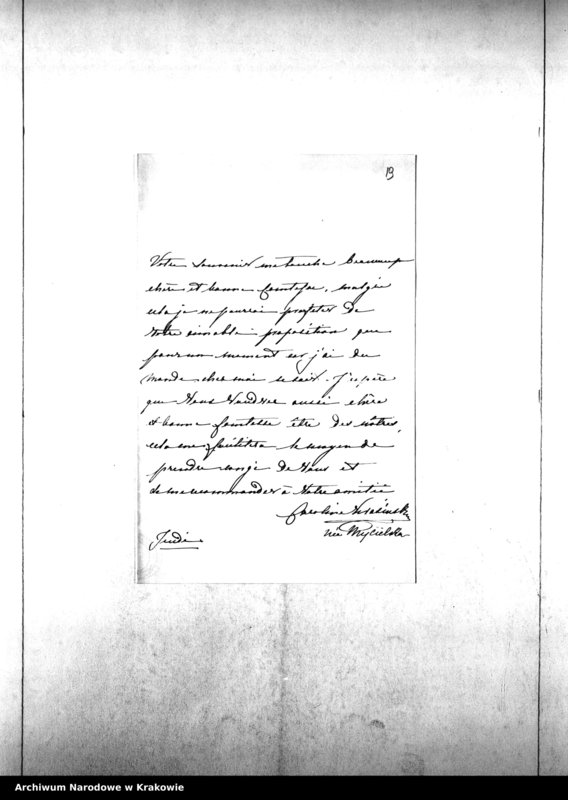 19
Votre souvenir me touche beaucoup
chère et bonne Comtesse, malgré
cela je ne pourrai profiter de
votre aimable proposition que
pour un moment car j'ai du
monde chez moi ce soir. J'espère
que Vous Voudrez aussi chère
et bonne Comtesse être des nôtres,
cela me facilitera le moyen de
prendre congé de Vous et
de me recommander à Votre amitié
Caroline Krasińska
née Mycielska
Jeudi
Archiwum Narodowe w Krakowie